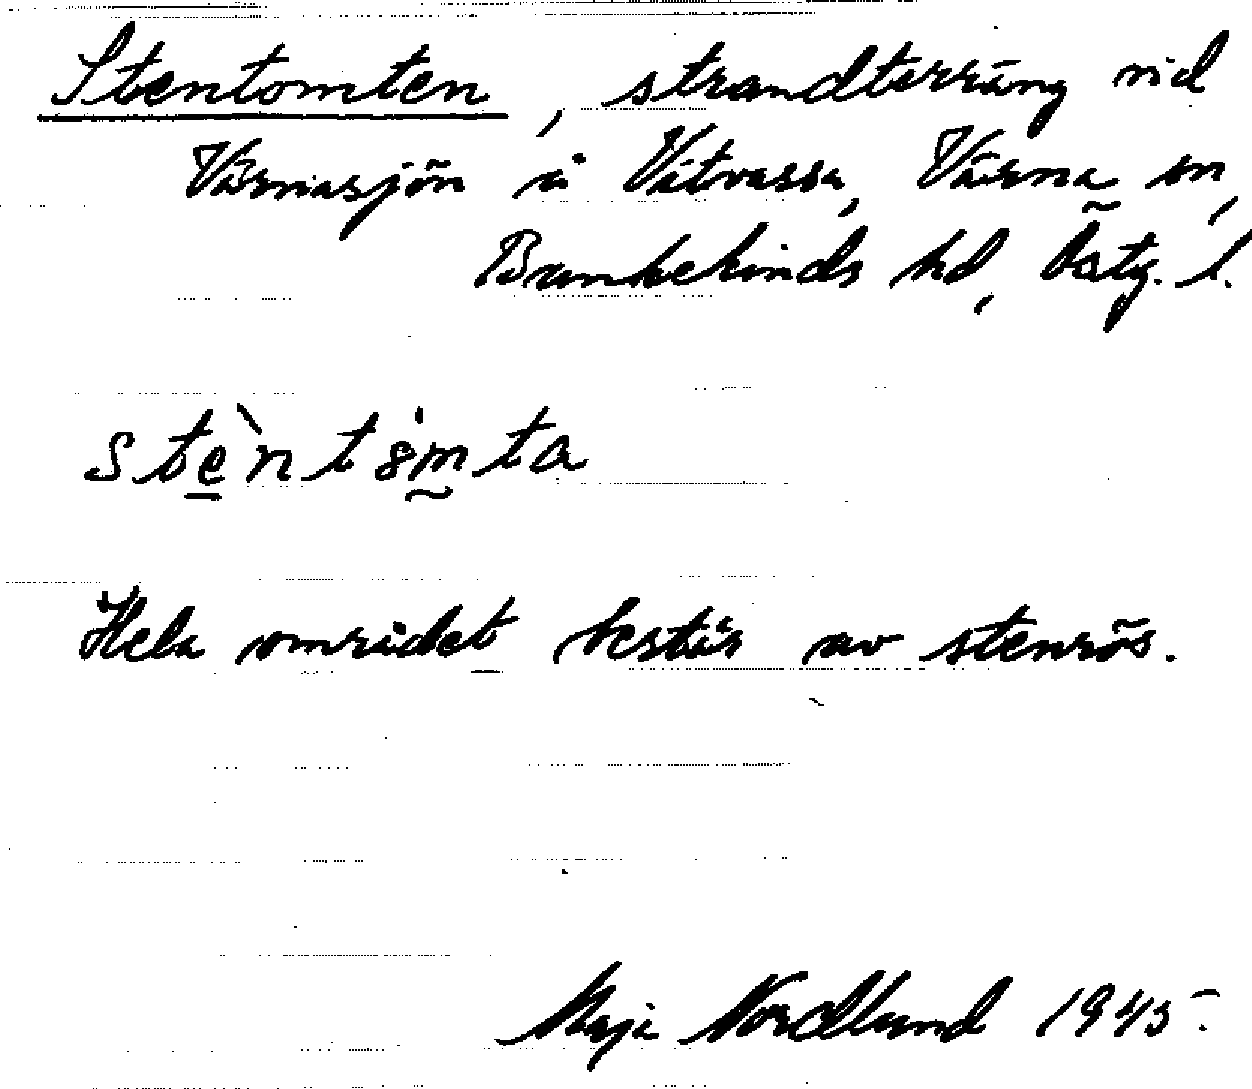 Stentomten, strandterräng vid
Värnasjön å Våtvassa, Värna sn,
Bankekinds hd, Östg. l.
stèntómta
Hela området består av stenrös.
Maja Nordlund 1945.